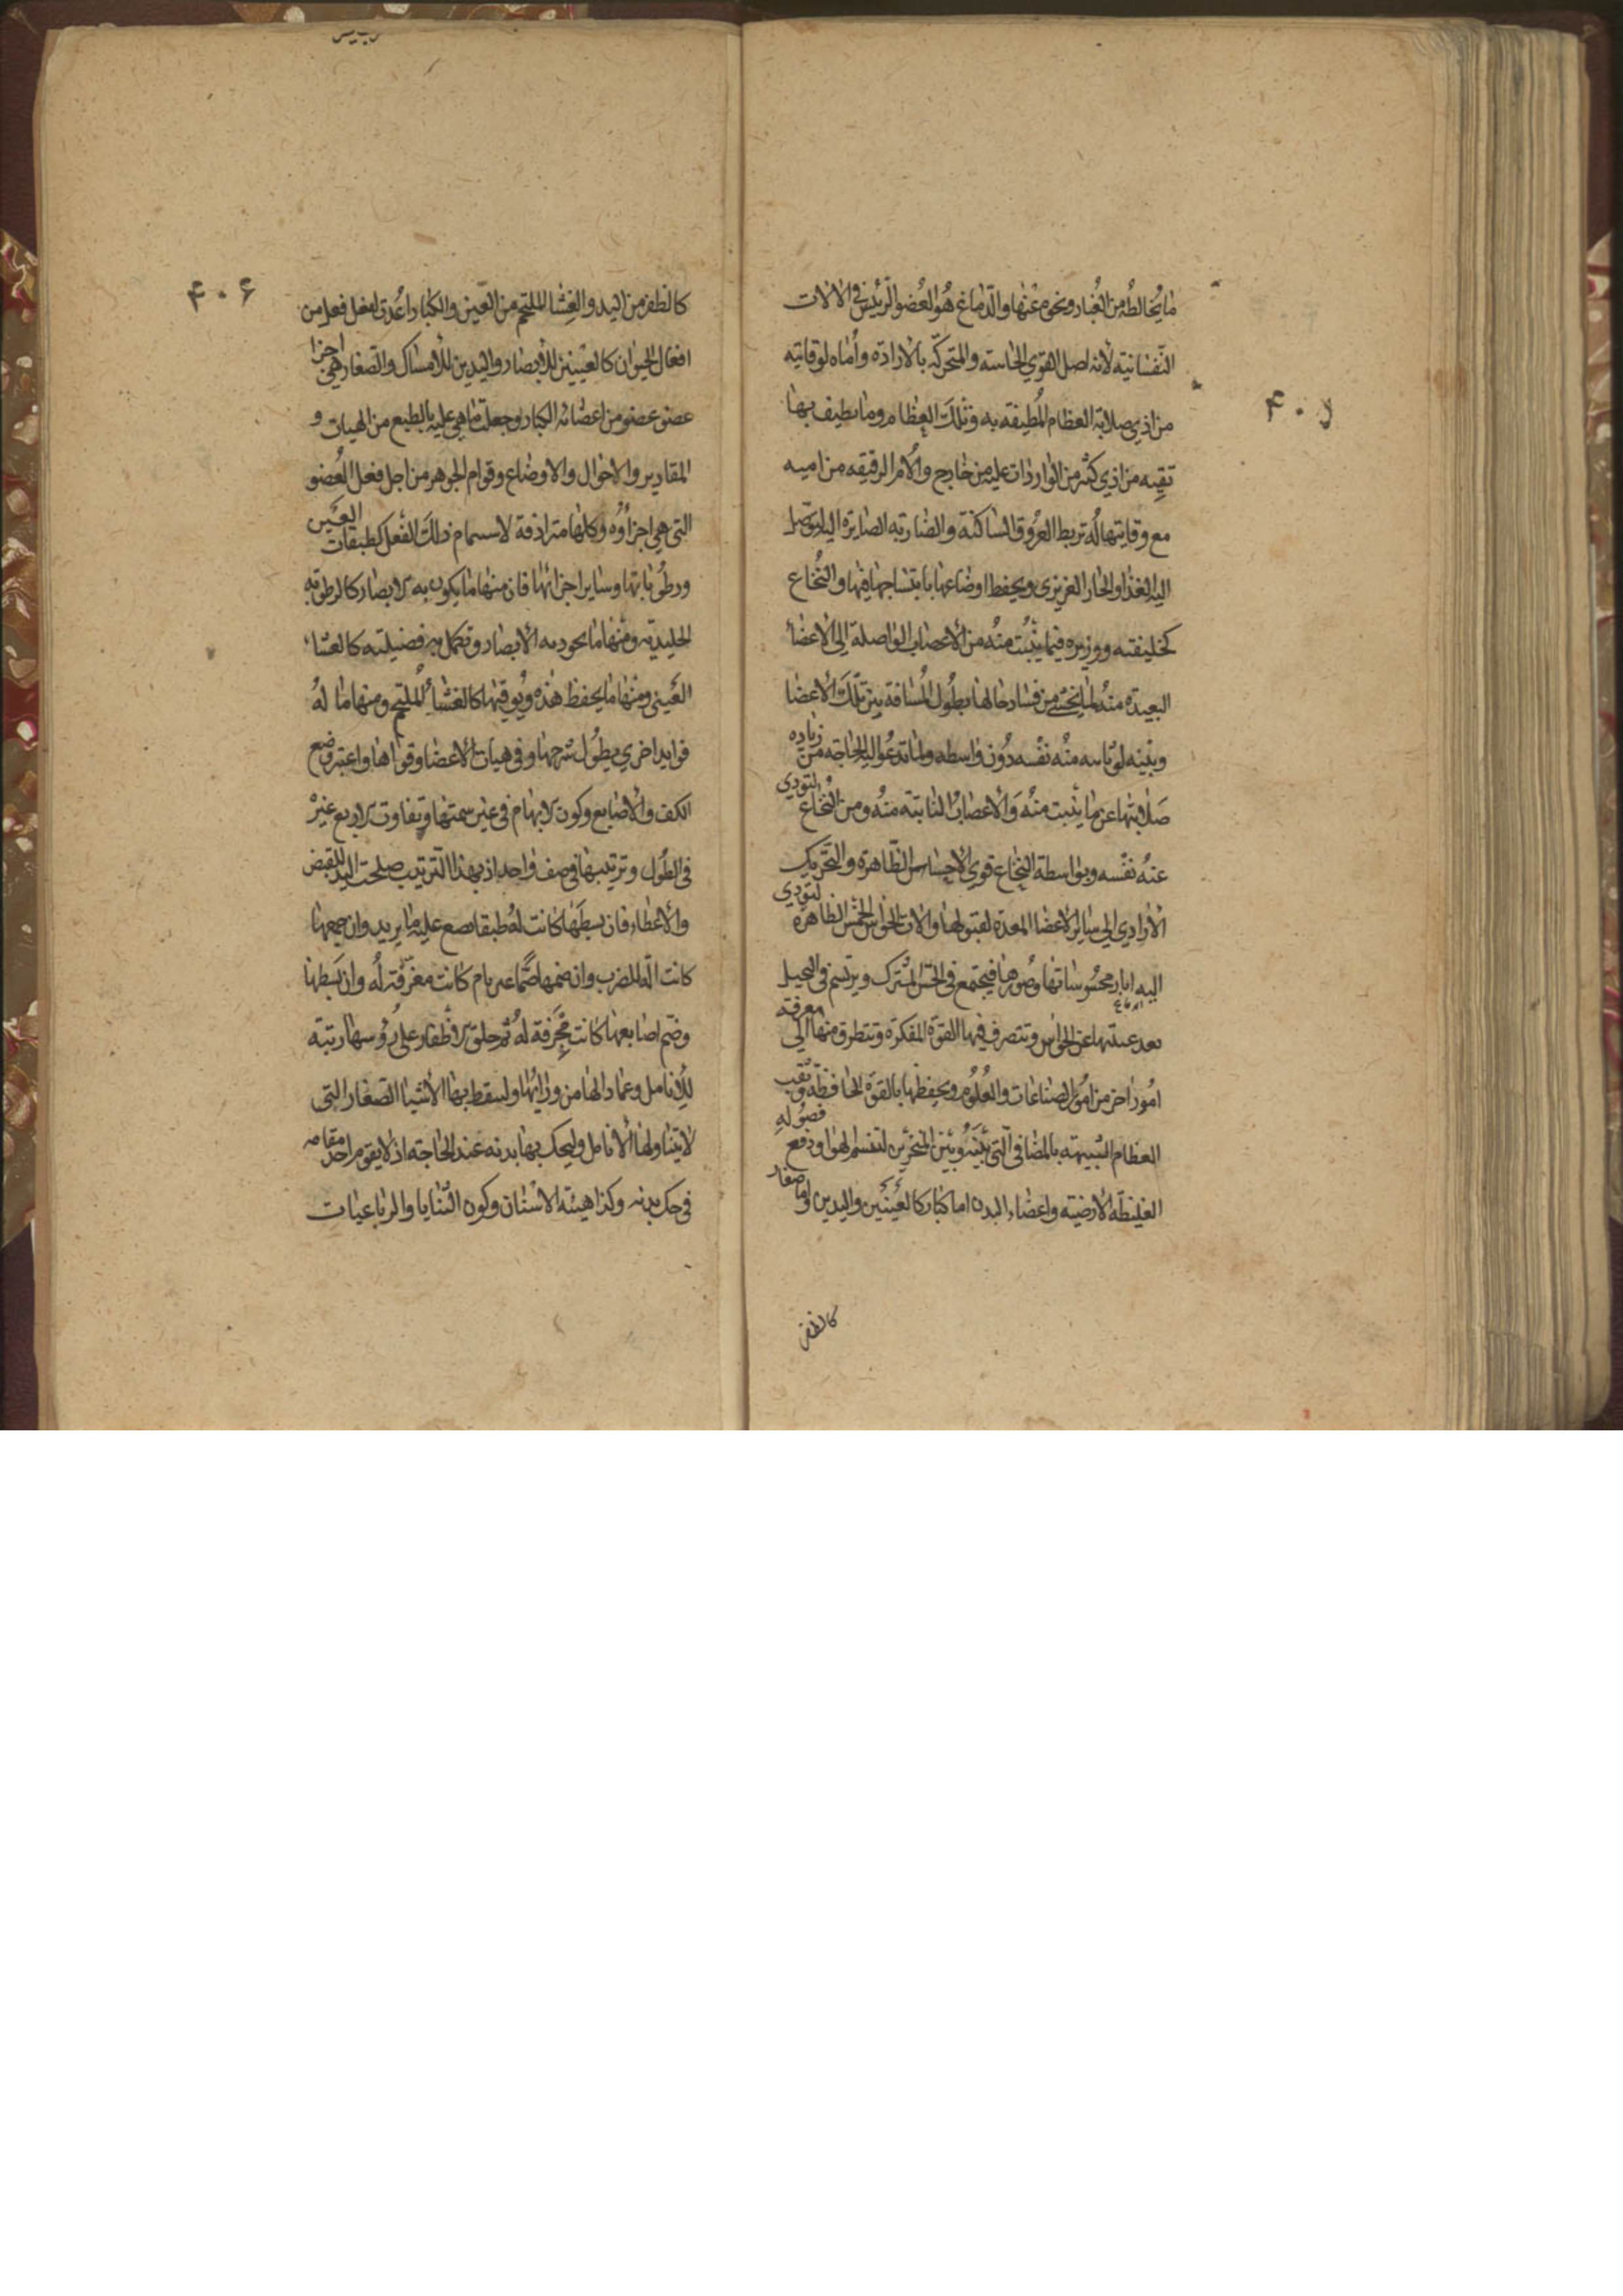 ما يخالطه من الغبار ونحوه عنها والدماغ هو العضو الرئيس في الالات
النفسانية لانه اصل القوي الحاسه والمتحركه بالارادة وأماه لوقايته
من اذي صلابة العظام المطيفه به وتلك العظام وما يطيف بها
تقيه من اذي كثر من الواردات عليه من خارج والأم الرقيقه من اميه
مع وقايتها له تربط العروق الساكنة والضاربه الصايرة اليه ليوصل
اليه الغذا والحار الغريزي ويحفظ اوضاعها بانتساجها فيها والنخاع
كخليفته ووزيره فيما ينبت منه من الأعصاب الواصلة الي الاعضا
البعيدة منه لما يخشي من فساد حالها بطول المسافة بين تلك الاعضا
وبينه لو تاسه منه نفسه دون واسطه ولما تدعوا اليه الحاجه من زياده
صلابتها عن ما ينبت منه والأعصاب النابتة منه ومن النخاع لتودي
عنه نفسه وبواسطة النخاع قوي الاحساس الظاهرة والتحريك
الأرادي الي ساير الاعضا المعدة لقبولها والات الحواس الخمس الظاهرة لتودي
اليه اثار محسوساتها وصورها فيجتمع في الحس المشترك ويرتسم في التخيل
بعد غيبتها عن الحواس وتتصرف فيها القوة المفكرة وتتطرق منها الي معرفة
امور اخر من امور الصناعات والعلوم ويحفظها بالقوة الحافظة وثقب
العظام الشبيهة بالمصافي التي بينه وبين المنخرين لتنسم الهوا ودفع فضوله
الغليظة الأرضية واعضاء البدن اما كبار كالعينين واليدين واما صغار
كالظفر
۴۰۵
۴۰۶
كالظفر من اليد والغشا الملتحم من العين والكبار اعدت لفعل فعل من
افعال الحيوان كالعينين للأبصار واليدين للأمساك والصغار هي اجزا
عضو عضو من اعضائه الكبار وجعلت ما هي عليه بالطبع من الهيات و
المقادير والاحوال والاوضاع وقوام الجوهر من اجل فعل العضو
التي هي اجزاؤه وكلها مترادفة لاستتمام ذلك الفعل كطبقات العين
ورطوباتها وساير اجزائها فان منها ما يكون به الابصار كالرطوبة
الجليدية ومنها ما يجود به الأبصار وتكمل به فضيلته كالغشاء
العنبي ومنها ما يحفظ هذه ويوقيها كالغشا الملتحم ومنها ما له
فوايد اخري يطول شرحها وفي هيات الأعضا وقواها واعتبر وضع
الكف والأصابع وكون الابهام في غير سمتها وتفاوت الاربع غيره
في الطول وترتيبها في صف واحد اذ بهذا الترتيب صلحت اليد للقبض
والأعطاء فان بسطها كانت له طبقا يضع عليه ما يريد وان جمعها
كانت الة للضرب وان ضمها ضما غير تام كانت مغرفة له وان بسطها
وضم اصابعها كانت مجرفة له ثم خلق الاظفار علي رؤسها زينة
للأنامل وعمادا لها من ورائها ولسقط بها الأشيا الصغار التي
لا تتناولها الأنامل وليحك بها بدنه عند الحاجة اذ لا يقوم احد مقامه
في حك بدنه وكذا هيئة الاسنان وكون الثنايا والرباعيات